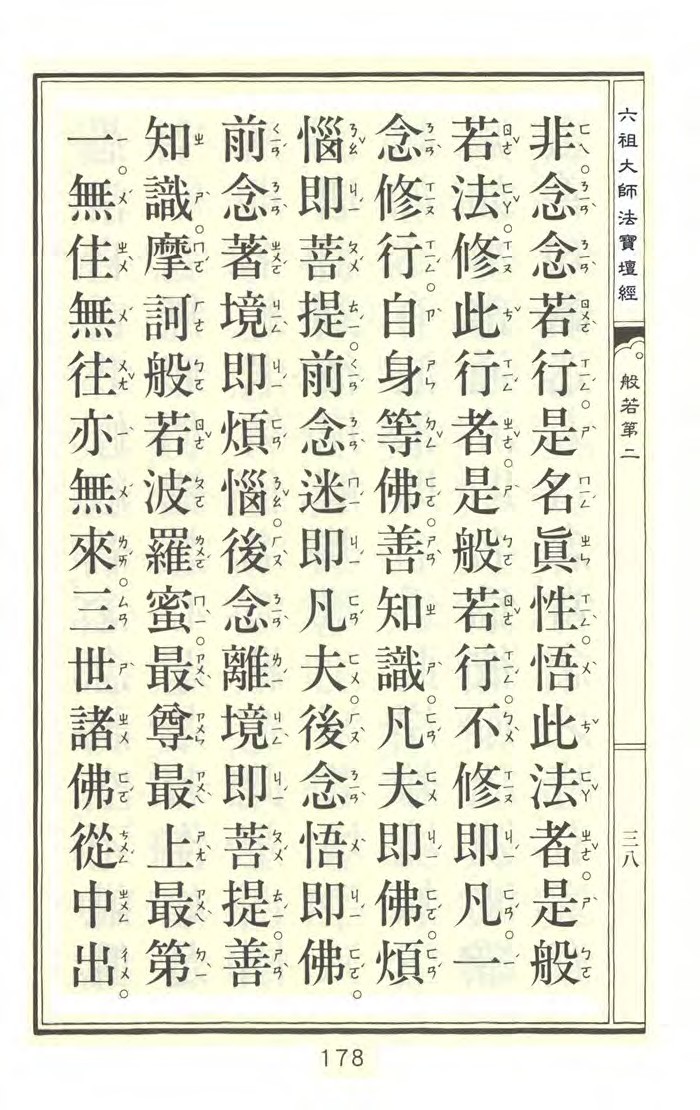 六祖大師法寶壇經
般若第二
三八
非。念念若行。是名眞性。悟此法者。是般
若法。修此行者。是般若行。不修即凡。一
念修行。自身等佛。善知識。凡夫即佛。煩
惱即菩提。前念迷即凡夫。後念悟即佛。
前念著境即煩惱。後念離境即菩提。善
知識。摩訶般若波羅蜜。最尊最上最第
一。無住無往亦無來。三世諸佛從中出。
178